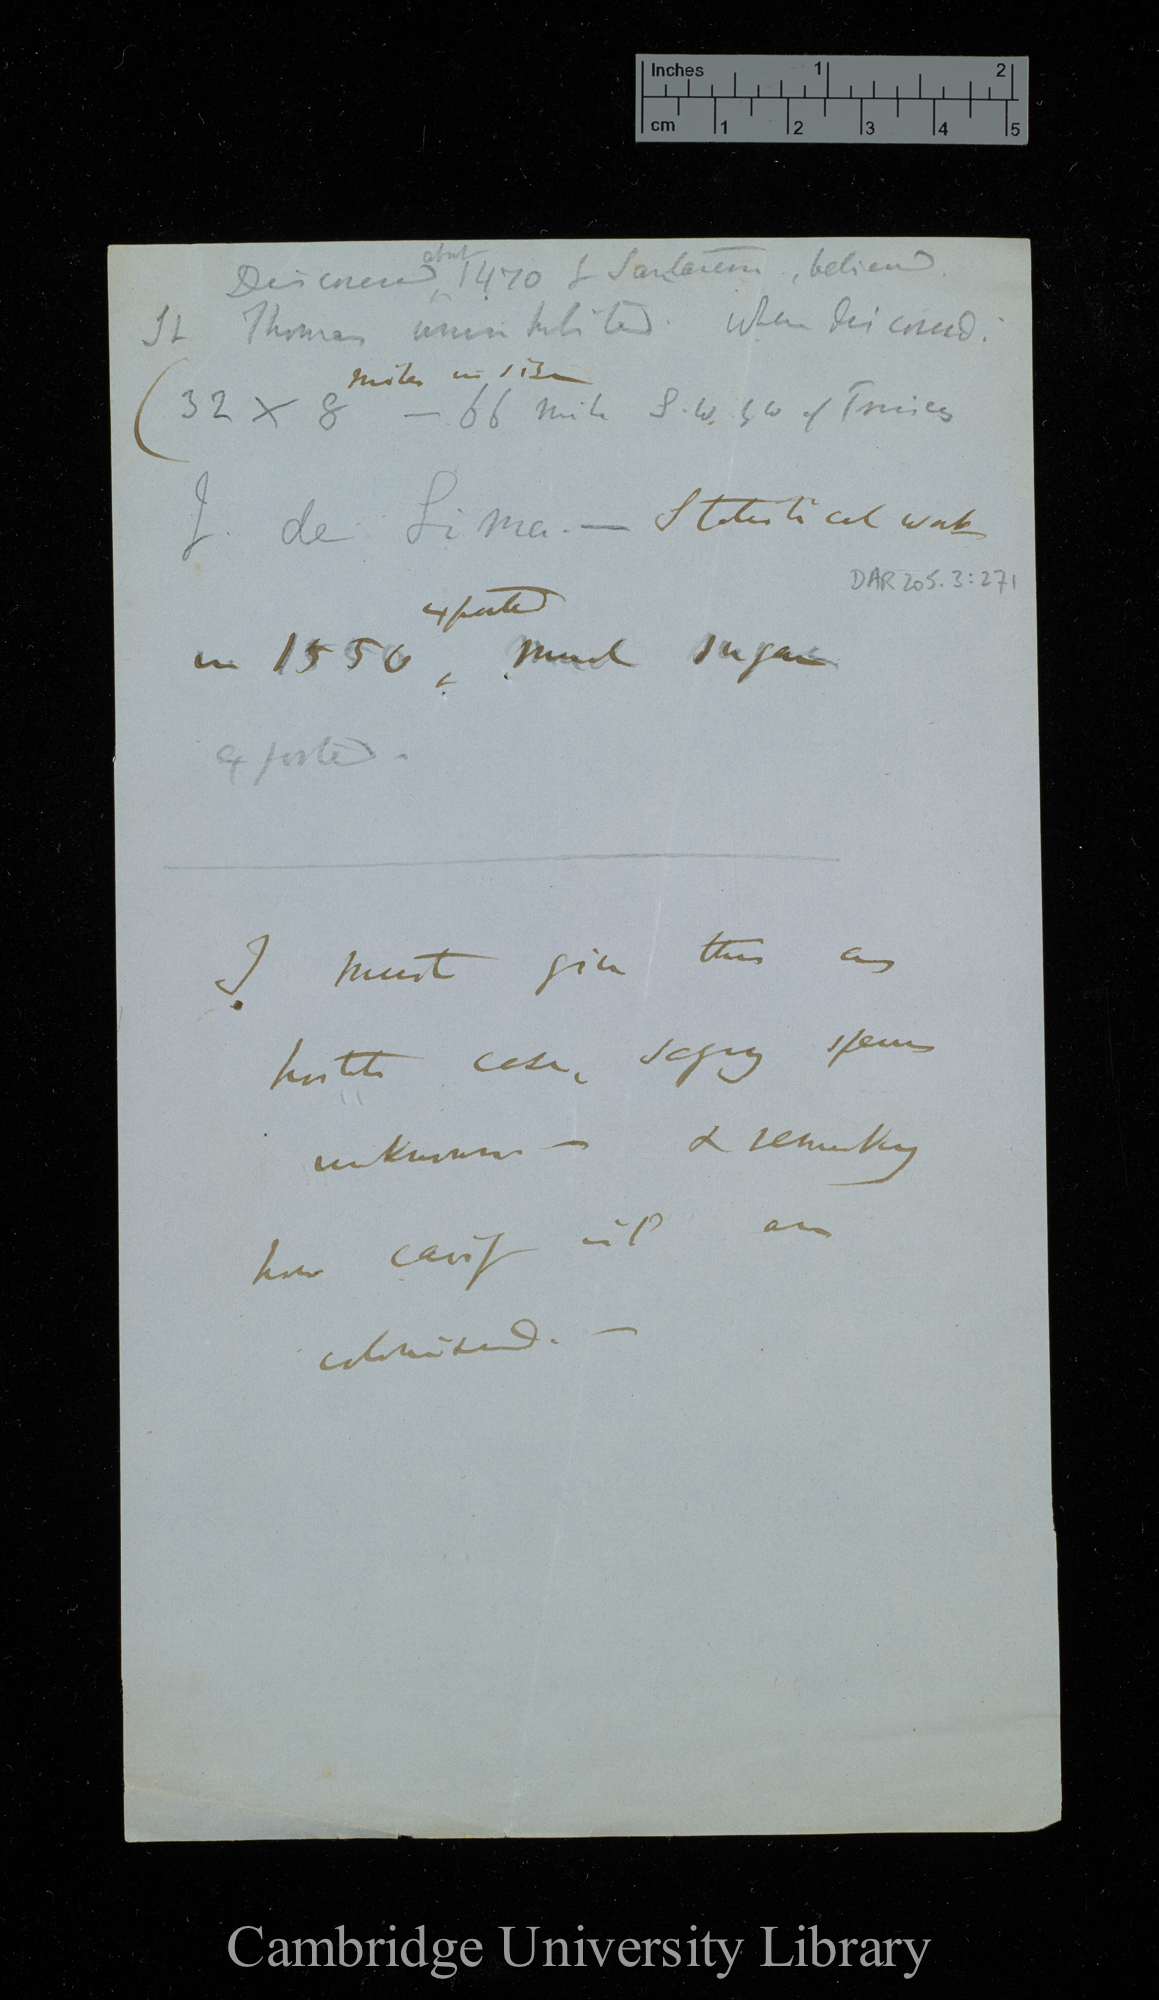 Inches 1 2
cm 1 2 3 4 5
about
Discovered 1470 by Santarem, believed
St Thomas uninhabited when discovered.
miles in size
(32 × 8 — 66 mile S.W. by W of
J. de Lima. — Statistical work
DAR 205.3:271
exported
in 1550, much sugar
exported.
I must give this as
hostile case, saying species
unknown — & remarking
how easily isld are
colonised. —
Cambridge University Library